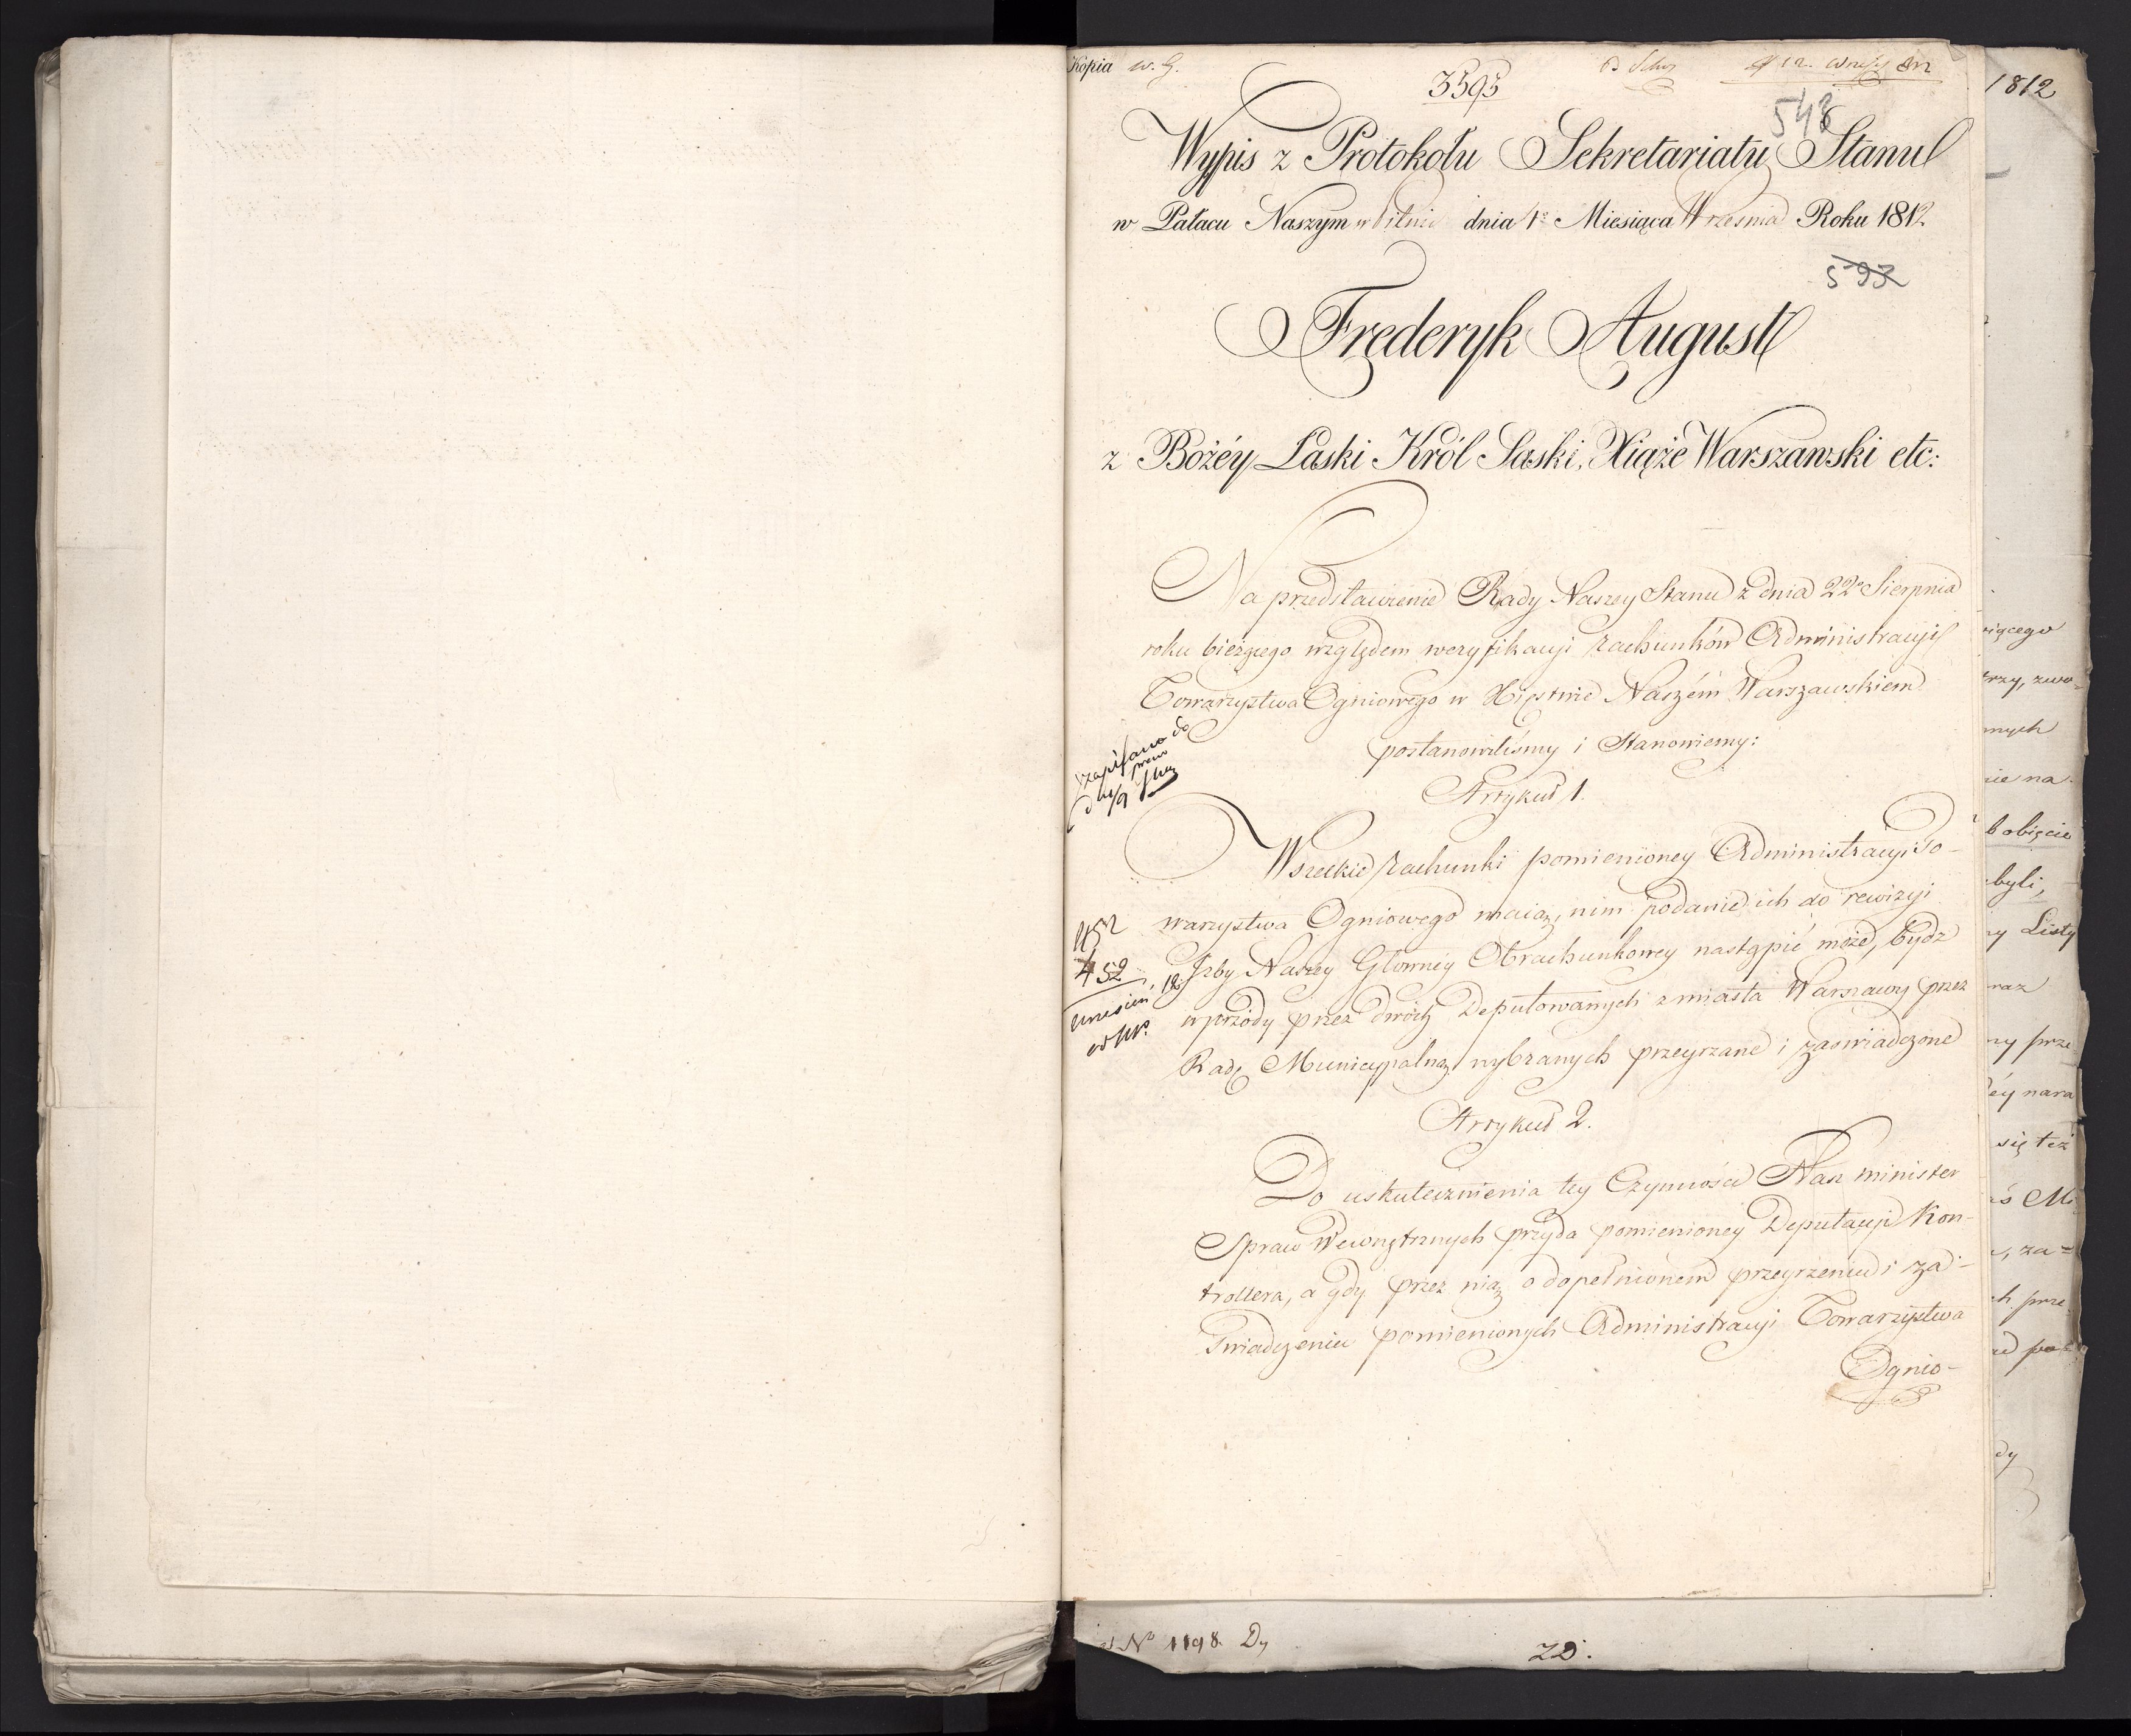 Kopia w. G.
3593
548
Wypis z Protokołu Sekretariatu Stanu
w Pałacu Naszym dnia 1º Miesiąca Wrzesnia Roku 1812
593
Frederyk August
z Bożéy Łaski Król Saski, Xiąże Warszawski etc:
Na przedstawienie Rady Naszey Stanu z dnia 22º Sierpnia
roku bieżącego względem weryfikacyi rachunków Administracyi
Towarzystwa Ogniowego w Xięstwie Naszém Warszawskiem
postanowiliśmy i Stanowiemy:
zapisano do
Artykuł 1.
Wszelkie rachunki pomienioney Administracyi To-
warzystwa Ogniowego maią, nim podanie ich do rewizyi
452
Izby Naszey Główney Obrachunkowey nastąpić może, bydź
wprzódy przez dwóch Deputowanych z miasta Warszawy przez
Radę Municypalną wybranych przeyrzane i zaświadczone
Artykuł 2.
Do uskutecznienia tey Czynności Nasz minister
Spraw Wewnętrznych przyda pomienioney Deputacyi Kon-
trollera, a gdy przez nią o dopełnioném przeyrzeniu i za-
świadczeniu pomienionych Administracyi Towarzystwa
Ognio-
Nº 1198. Dy
1812
iącego
trzy, zwo=
nych
nie na
obięcie
byli,
y Listy
raz
ny prze
éy nara
się też
ś Mi
, za=
h prze
dy